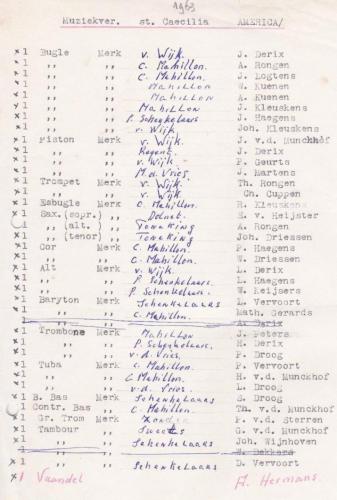 1963
Muziekver. st. Caecilia AMERICA/
x 1 Bugle Merk v. Wijk. J. Derix
x 1 ,, ,, C. Mahillon. A. Rongen
x 1 ,, ,, C. Mahillon. J. Logtens
x 1 ,, ,, Mahillon W. Kuenen
x 1 ,, ,, Mahillon A. Kuenen
x 1 ,, ,, Mahillon J. Kleuskens
x 1 ,, ,, P. Schenkelaars J. Haegens
x 1 ,, ,, v. Wijk Joh. Kleuskens
x 1 Piston Merk v. Wijk. J. v.d. Munckhof
x 1 ,, ,, J. Derix
x 1 ,, ,, v. Wijk P. Geurts
x 1 ,, ,, M. d. Vries. J. Martens
x 1 Trompet Merk v. Wijk Th. Rongen
x 1 ,, ,, v. Wijk Ch. Cuppen
x 1 Esbugle Merk C. Mahillon. R. Kleuskens
x 1 Sax. (sopr.) ,, E. v. Heijster
1 ,, (alt.) ,, Toneking A. Rongen
x 1 ,, (tenor) ,, Toneking Joh. Driessen
x 1 Cor Merk C. Mahillon. P. Haegens
x 1 ,, ,, C. Mahillon. W. Driessen
x 1 Alt Merk v. Wijk. L. Derix
x 1 ,, ,, P. Schenkelaars. L. Haegens
x 1 ,, ,, P. Schenkelaars. W. Keijsers
x 1 Baryton Merk Schenkelaars L. Vervoort
x 1 ,, ,, C. Mahillon. Math. Gerards
x 1 ,, ,, A. Derix
x 1 Trombone Merk Mahillon W. Peters
x 1 ,, ,, P. Schenkelaars H. Derix
x 1 ,, ,, v. d. Vries. P. Droog
x 1 Tuba Merk C. Mahillon. P. Vervoort
x 1 ,, ,, C Mahillon. H. v.d. Munckhof
x 1 ,, ,, v. d. Vries. L. Droog
x 1 B. Bas Merk Schenkelaars S. Droog
1 Contr. Bas ,, C. Mahillon. Th. v.d. Munckhof
x 1 Gr. Trom Merk P. v.d. Sterren
x 1 Tambour ,, G. v.d. Munckhof
x 1 ,, ,, Schenkelaars Joh. Wijnhoven
x 1 ,, ,, W. Dekkers
x 1 ,, ,, Schenkelaars D. Vervoort
x 1 Vaandel H. Hermans.